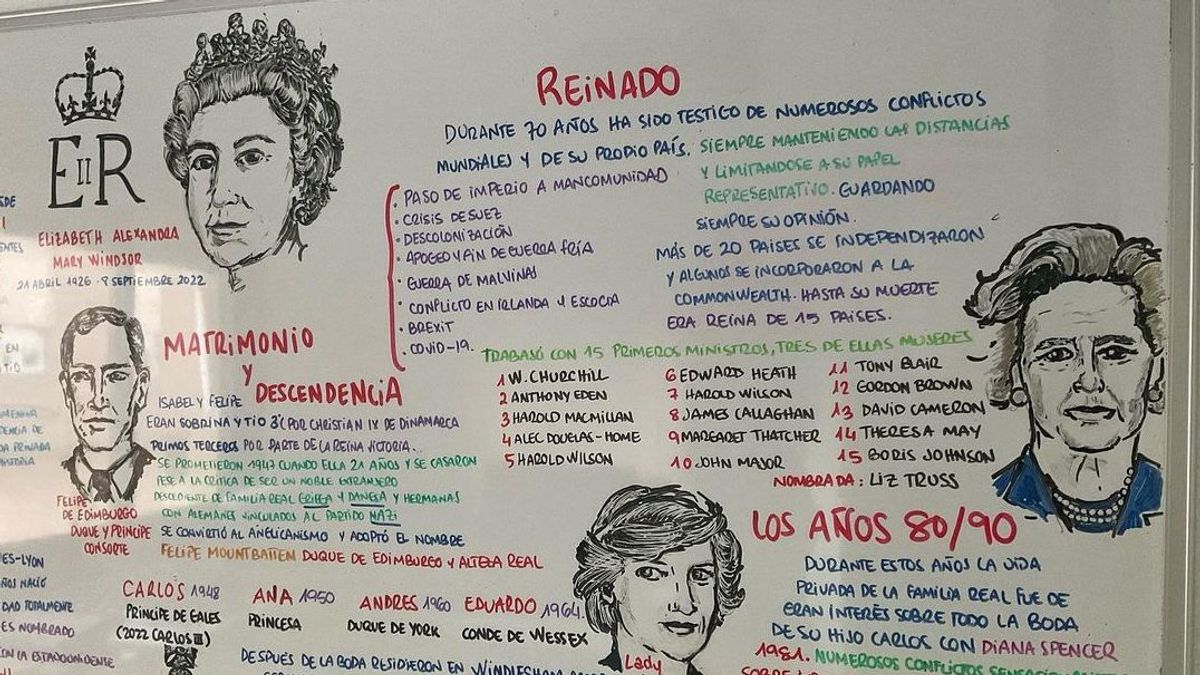 EIIR
ELIZABETH ALEXANDRA
MARY WINDSOR
21 ABRIL 1926 - 8 SEPTIEMBRE 2022
REINADO
DURANTE 70 AÑOS HA SIDO TESTIGO DE NUMEROSOS CONFLICTOS
MUNDIALES Y DE SU PROPIO PAÍS. SIEMPRE MANTENIENDO LAS DISTANCIAS
Y LIMITANDOSE A SU PAPEL
REPRESENTATIVO. GUARDANDO
SIEMPRE SU OPINIÓN.
MÁS DE 20 PAÍSES SE INDEPENDIZARON
Y ALGUNOS SE INCORPORARON A LA
COMMONWEALTH. HASTA SU MUERTE
ERA REINA DE 15 PAISES.
· PASO DE IMPERIO A MANCOMUNIDAD
· CRISIS DE SUEZ
· DESCOLONIZACIÓN
· APOGEO Y FIN DE GUERRA FRÍA
· GUERRA DE MALVINAS
· CONFLICTO EN IRLANDA Y ESCOCIA
· BREXIT
· COVID-19.
TRABAJÓ CON 15 PRIMEROS MINISTROS, TRES DE ELLAS MUJERES
1 W. CHURCHILL
2 ANTHONY EDEN
3 HAROLD MACMILLAN
4 ALEC DOUGLAS-HOME
5 HAROLD WILSON
6 EDWARD HEATH
7 HAROLD WILSON
8 JAMES CALLAGHAN
9 MARGARET THATCHER
10 JOHN MAJOR
11 TONY BLAIR
12 GORDON BROWN
13 DAVID CAMERON
14 THERESA MAY
15 BORIS JOHNSON
NOMBRADA: LIZ TRUSS
MATRIMONIO
Y
DESCENDENCIA
ISABEL Y FELIPE
ERAN SOBRINA Y TIO 3º( POR CHRISTIAN IX DE DINAMARCA
PRIMOS TERCEROS POR PARTE DE LA REINA VICTORIA...
SE PROMETIERON 1947 CUANDO ELLA 21 AÑOS Y SE CASARON
PESE A LA CRITICA DE SER UN NOBLE EXTRANJERO
DESCENDIENTE DE FAMILIA REAL GRIEGA Y DANESA Y HERMANAS
CON ALEMANES VINCULADOS AL PARTIDO NAZI
SE CONVIRTIÓ AL ANGLICANISMO Y ADOPTÓ EL NOMBRE
FELIPE MOUNTBATTEN DUQUE DE EDIMBURGO Y ALTEZA REAL
FELIPE
DE EDIMBURGO
DUQUE Y PRÍNCIPE
CONSORTE
CARLOS 1948
PRINCIPE DE GALES
(2022 CARLOS III)
ANA 1950
PRINCESA
ANDRES 1960
DUQUE DE YORK
EDUARDO 1964.
CONDE DE WESSEX
DESPUÉS DE LA BODA RESIDIERON EN
Lady
LOS AÑOS 80/90
DURANTE ESTOS AÑOS LA VIDA
PRIVADA DE LA FAMILIA REAL FUE DE
GRAN INTERÉS SOBRE TODO LA BODA
DE SU HIJO CARLOS CON DIANA SPENCER
1981. NUMEROSOS CONFLICTOS
EN
ES-LYON
DAD TOTALMENTE
ES NOMBRADO
CON LA ESTADOUNIDENSE